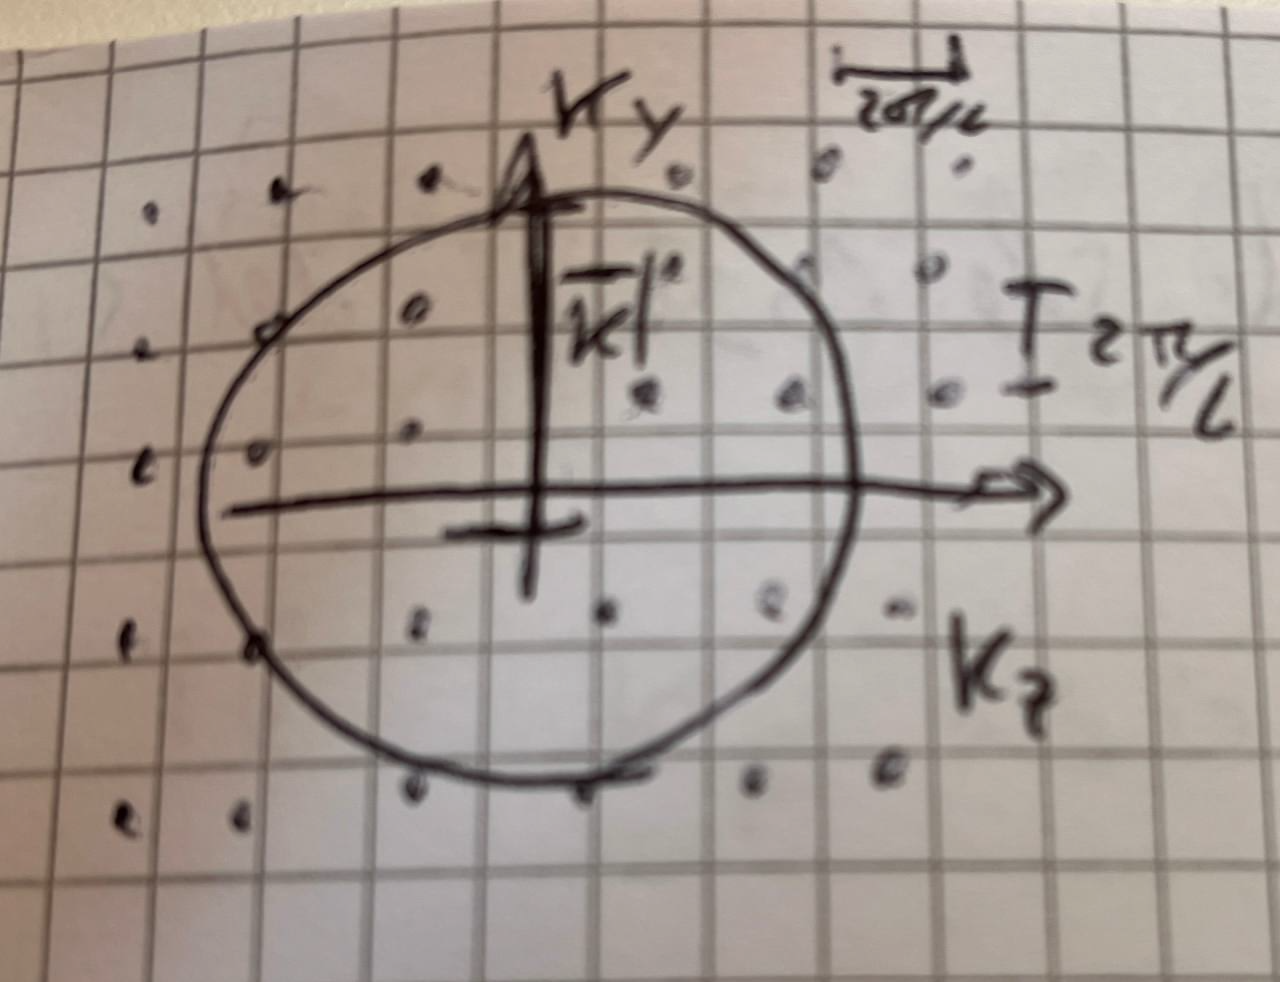 Ky
2π/L
|k|
2π/L
Kz